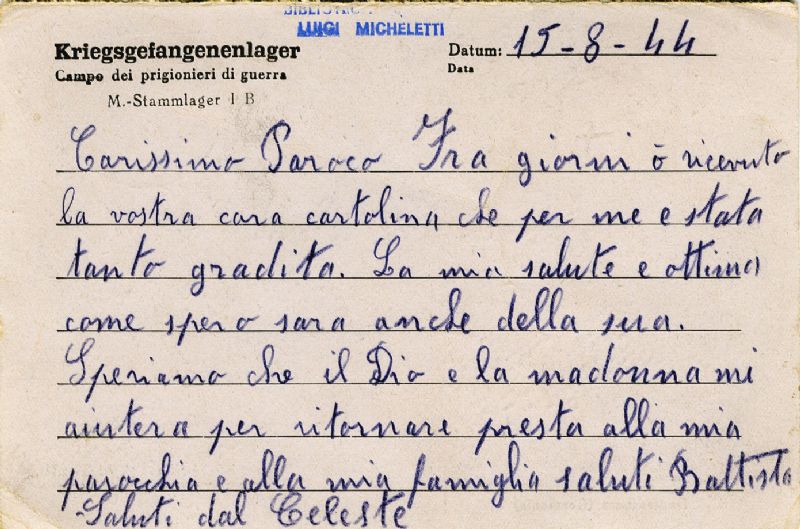 BIBLIOTECA
LUIGI MICHELETTI
Kriegsgefangenenlager
Campo dei prigionieri di guerra
M.-Stammlager I B
Datum: 15-8-44
Data
Carissimo Paroco Fra giorni ò ricevuto
la vostra cara cartolina che per me e stata
tanto gradita. La mia salute e ottima
come spero sara anche della sua.
Speriamo che il Dio e la madonna mi
aiutera per ritornare presta alla mia
parocchia e alla mia famiglia saluti Battista
Saluti dal Celeste